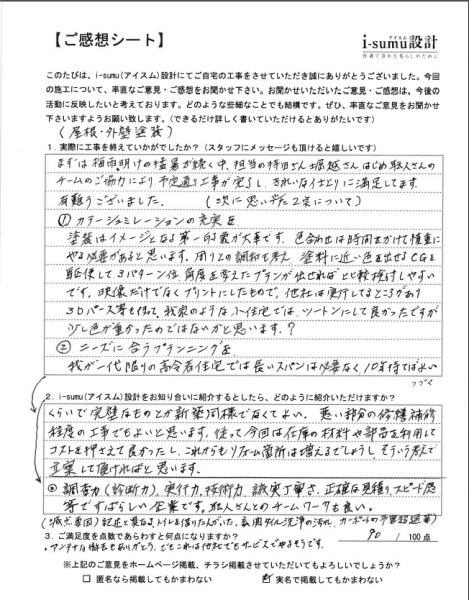 【ご感想シート】
アイスム
i-sumu設計
快適で自かな暮らしのために
このたびは、i-sumu(アイスム)設計にてご自宅の工事をさせていただき誠にありがとうございました。今回
の施工について、率直なご意見・ご感想をお聞かせ下さい。お聞かせいただいたご意見・ご感想は、今後の
活動に反映したいと考えております。どのような些細なことでも結構です。ぜひ、率直なご意見をお聞かせ
下さいますようお願い致します。(できるだけ詳しく書いていただけるとありがたいです)
(屋根・外壁塗装)
1. 実際に工事を終えていかがでしたか？(スタッフにメッセージも頂けると嬉しいです)
まずは梅雨明けの猛暑が続く中、担当の持田さん堀越さんはじめ職人さんの
チームのご協力により予定通り工事が完了し、きれいな仕上りに満足してます。
有難うございました。 (次に思いた2点について)
① カラーシュミレーションの充実を
塗装はイメージとなる第一印象が大事です。色合わせは時間をかけて慎重に
やる必要があると思います。周りとの調和も考え、塗料に近い色を出せるCGを
駆使して3パターン位、角度を考えたプランが出せればと比較検討しやすい
です。映像だけでなくプリントにしたもので、他社は実行してるところがあり
3Dパース等も、我家のような小住宅では、ツートンにして良かったですが
少し色が重かったのではないかと思います。?
② ニーズに合うプランニングを
我が一代限りの高令者住宅では長いスパンは必要なく10年持てばよい
つづく
2. i-sumu(アイスム)設計をお知り合いに紹介するとしたら、どのように紹介いただけますか？
くらいで完璧なものとか新築同様でなくてよい、悪い部分の修繕補修
程度の工事でもよいと思います。従って今回は在庫の材料や部品を利用して
コストを押さえて良かったし、これからもリフォーム箇所は増えるでしょうし、そういう考えで
立案して頂ければと思います。
◎ 調査力(診断力)、実行力、技術力、誠実丁寧さ、正確な見積り、スピード感
等ですばらしい企業です。職人さんとのチームワークも良い。
(減点要因)記述と異なるトイレを借りた人がいた、玄関タイル洗浄の汚れ、カーポートの予算超過等)
3. ご満足度を点数であらわすと何点になりますか？ 90 / 100 点
・アンテナは撤去もありがとう、でもこれは他社でもサービスでやるそうです。
※上記のご意見をホームページ掲載、チラシ掲載させていただいてもよろしいでしょうか？
□ 匿名なら掲載してもかまわない ☑ 実名で掲載してもかまわない